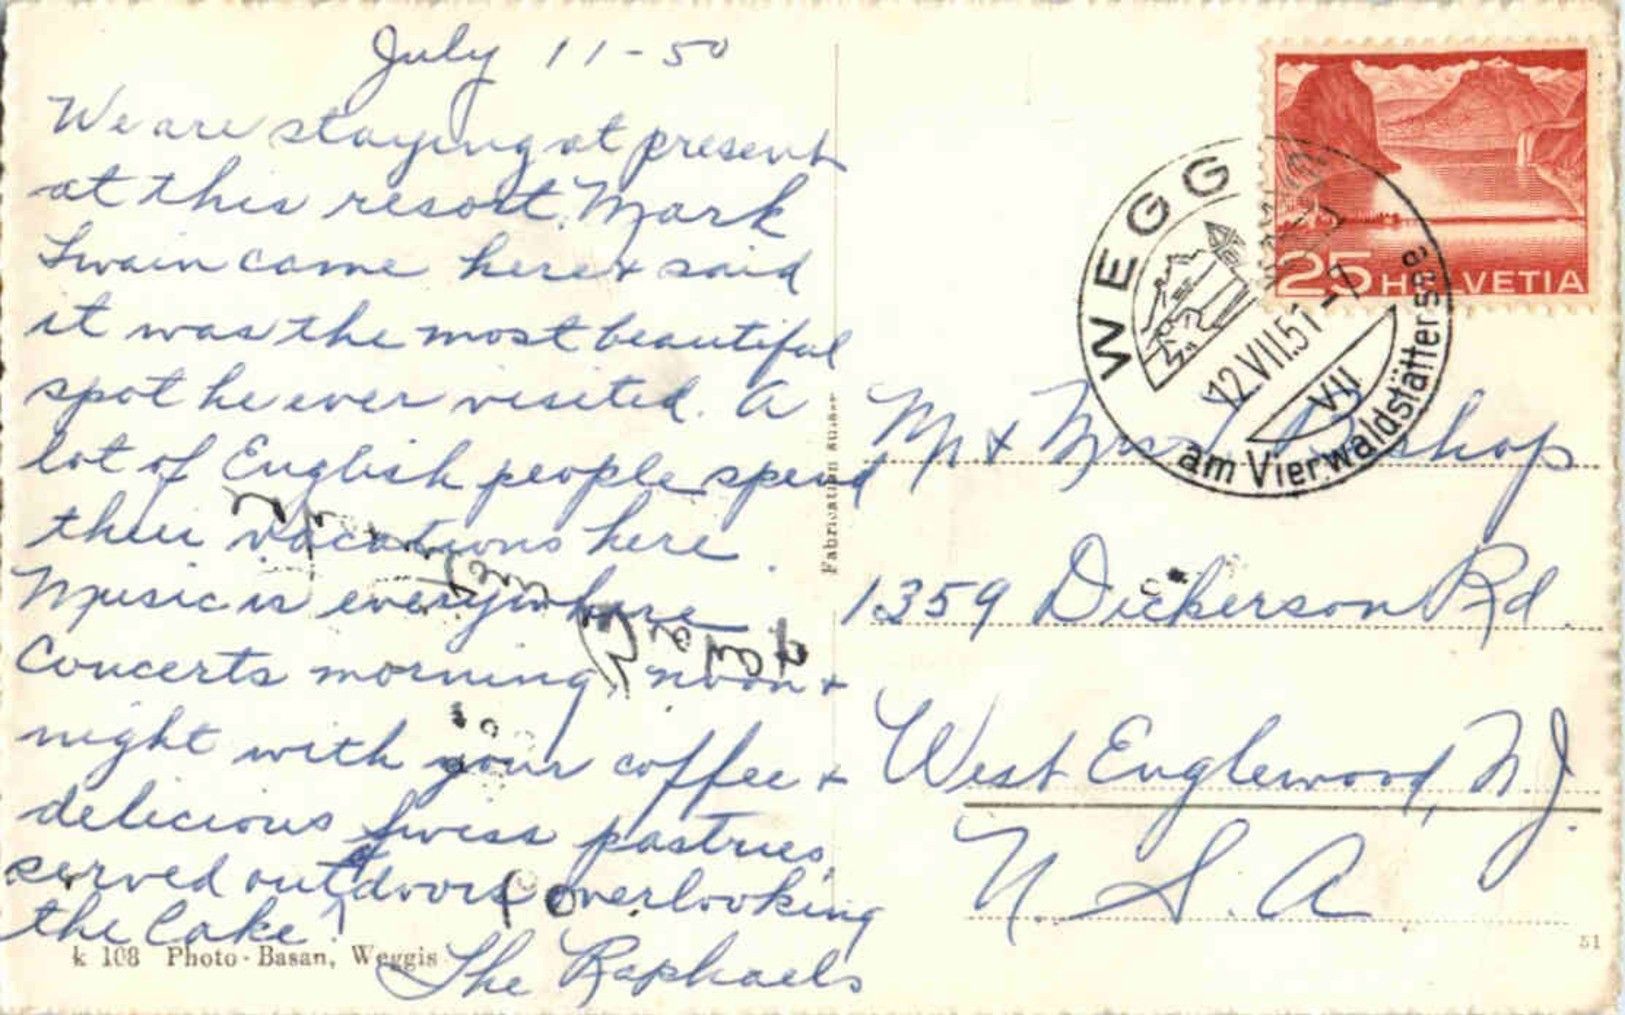 July 11-50
We are staying at present
at this resort. Mark
Twain came here + said
it was the most beautiful
spot he ever visited. A
lot of English people spend
their vacations here.
Music is everywhere
Concerts morning, noon +
night with your coffee +
delicious Swiss pastries,
served outdoors overlooking
the lake!
The Raphaels
k 108 Photo-Basan, Weggis
Fabrication suisse
25 HELVETIA
WEGGIS
12.VII.51-
VII
am Vierwaldstättersee
Mr + Mrs Bishop
1359 Dickerson Rd.
West Englewood, N.J.
U.S.A
51